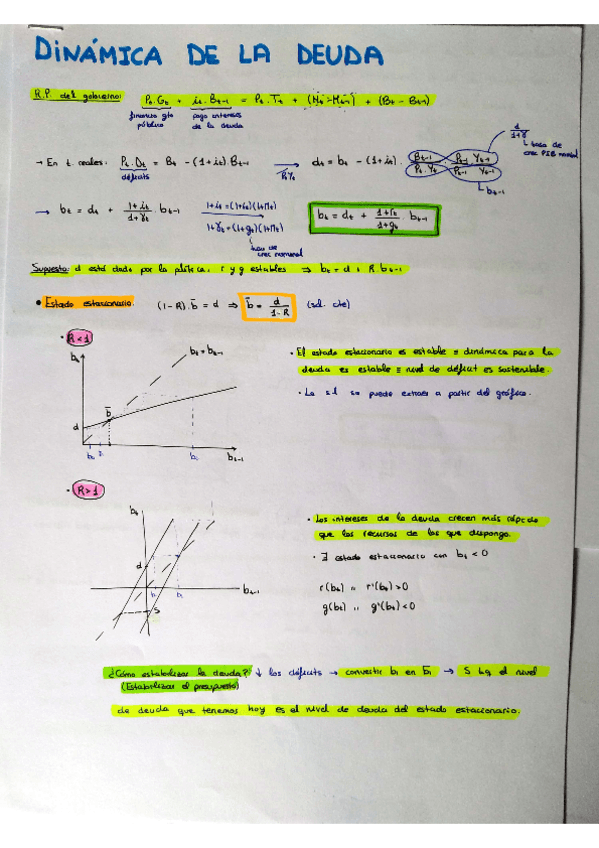 DINÁMICA DE LA DEUDA
R.P. del gobierno: Pt.Gt + it.Bt-1 = Pt.Tt + (Mt-Mt-1) + (Bt - Bt-1)
financia gto público
pago intereses de la deuda
→ En t. reales: Pt.Dt = Bt - (1+it)Bt-1 → dt = bt - (1+it). Bt-1/Pt.Yt . Pt-1.Yt-1/Pt-1.Yt-1
déficits
PtYt
1/1+γ
tasa de crec PIB nominal
bt-1
→ bt = dt + 1+it/1+γt . bt-1
1+it=(1+rt)(1+Πt)
1+γt=(1+gt)(1+Πt)
tasa de crec nominal
bt = dt + 1+rt/1+gt bt-1
Supuesto: d está dado por la política, r y g estables ⇒ bt = d + R bt-1
• Estado estacionario. (1-R).b̄ = d ⇒ b̄ = d/1-R (sol. cte)
• R<1
bt
bt = bt-1
b̄
d
bt-1
• El estado estacionario es estable ≡ dinámica para la
deuda es estable ≡ nivel de déficit es sostenible.
• La s.l se puede extraer a partir del gráfico.
• R>1
bt
d
bt-1
S
• Los intereses de la deuda crecen más rápido
que los recursos de los que dispongo.
• ∃ estado estacionario con bt < 0
r(bt) r'(bt)>0
g(bt) g'(bt)<0
¿Cómo estabilizar la deuda? ↓ los déficits → convertir b1 en b̄1 → S t.q el nivel
(Estabilizar el presupuesto)
de deuda que tenemos hoy es el nivel de deuda del estado estacionario.